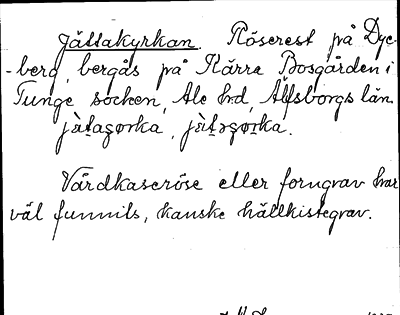 Jättakyrkan. Röserest på Dye-
-berg, bergås på Kärra Bosgården i
Tunge socken, Ale hd, Älfsborgs län.
jàt̠agørka, jàt̠əgørka.
Vårdkaseröse eller forngrav har
väl funnits, kanske hällkistegrav.